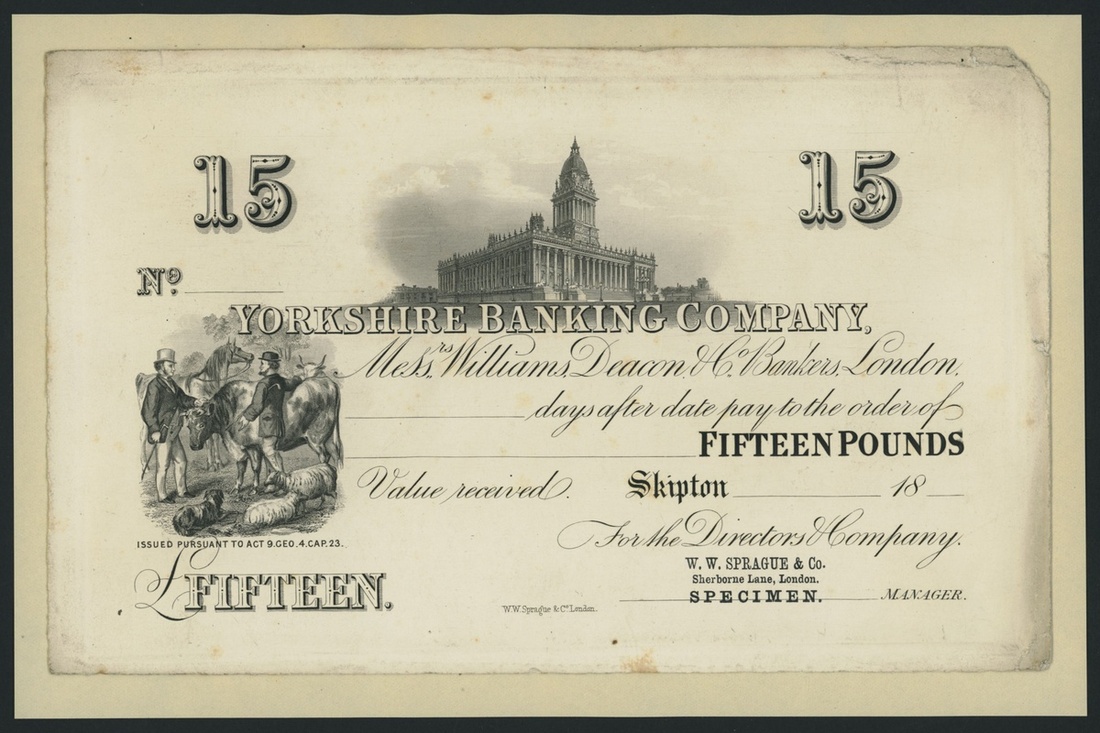 15 15
Nº.
YORKSHIRE BANKING COMPANY,
Messrs. Williams, Deacon & Co. Bankers, London,
days after date pay to the order of
FIFTEEN POUNDS
Value received. Skipton 18
ISSUED PURSUANT TO ACT 9.GEO.4.CAP.23.
For the Directors & Company.
£FIFTEEN.
W. W. SPRAGUE & Co.
Sherborne Lane, London.
SPECIMEN. MANAGER.
W.W. Sprague & Co. London.